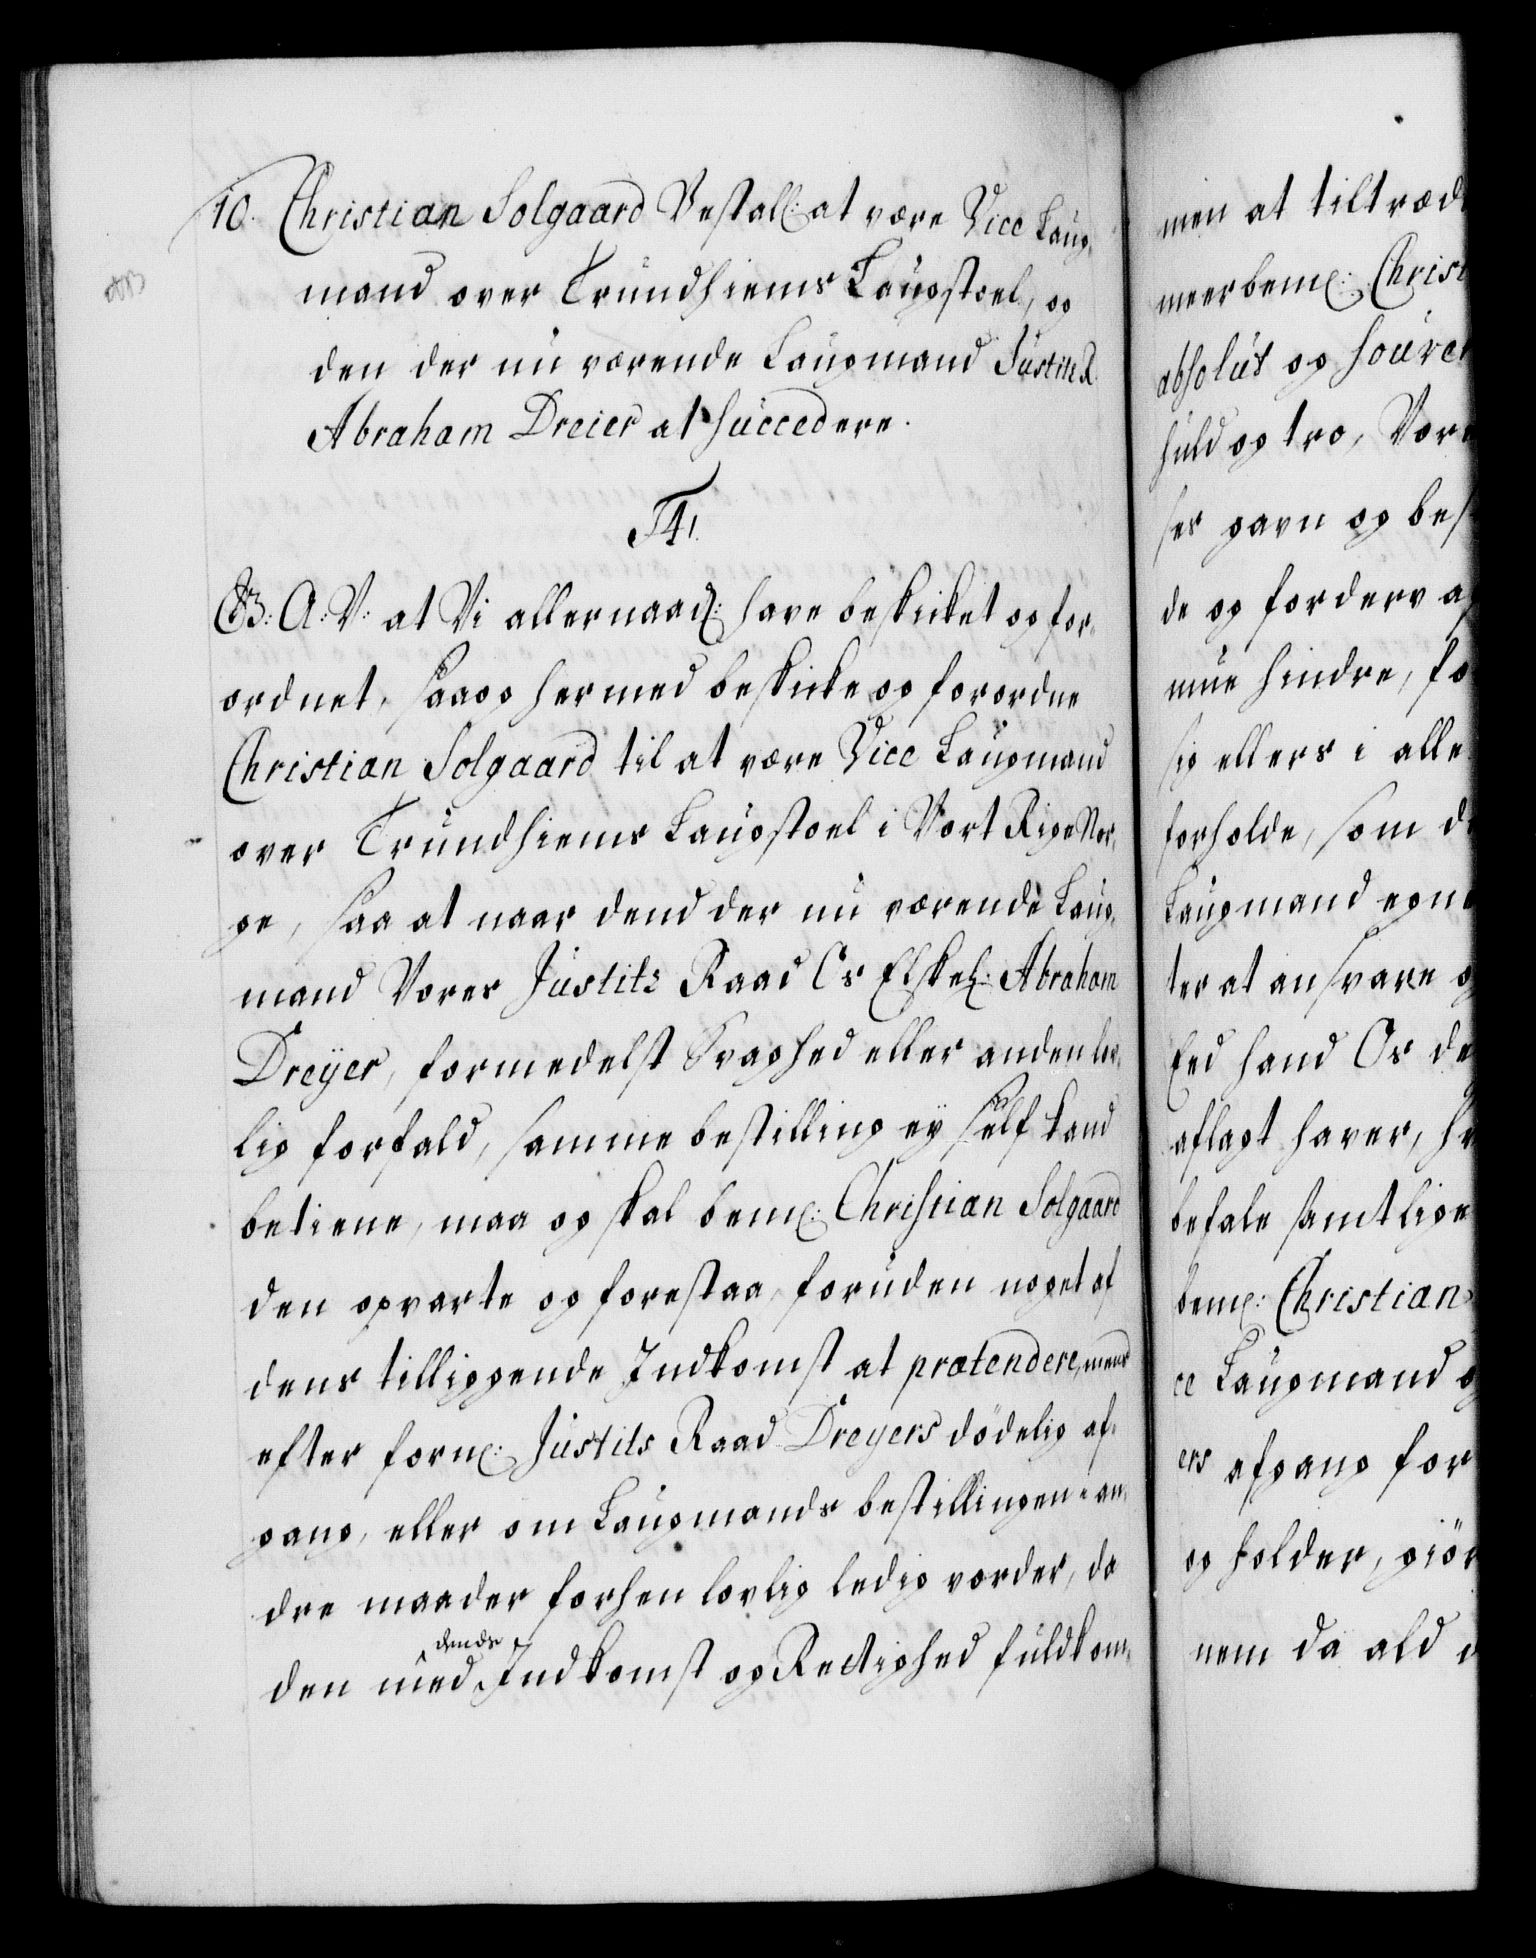 10. Christian Solgaard Bestall: at være Vice Laug-
mand over Trundhiems Laugstoel, og
den der nu værende Laugmand Justits R.
Abraham Dreier at succedere.
F4.
G: A: V: at Vi allernaad: have beskicket og for-
ordnet, saa og hermed beskicke og forordne
Christian Solgaard til at være Vice Laugmand
over Trundhiems Laugstoel i Vort Rige Nor-
ge, saa at naar dend der nu værende Laug-
mand Vores Justits Raad Os Elskel: Abraham
Dreÿer, formedelst Svaghed eller anden lov-
lig forfald, samme bestilling eÿ self kand
betiene, maa og skal bem: Christian Solgaard
den opvarte og forestaa, foruden noget af
dens tilliggende Indkomst at prætendere, mens
efter forn: Justits Raad Dreyers dödelig af-
gang, eller om Laugmands bestillingen i an-
dre maader forhen lovlig ledig vorder, da
den med dends Indkomst og Rectighed fuldkom-
men at tiltræd
meerbem: Christ
absolut og souver
huld og tro, Vor
ses gavn og bes
de og forderv af
mue hindre, fo
sig ellers i alle
forholde, som d
Laugmand egne
ter at ansvare og
Eed hand Os de
aflagt haver, h
befale samtlige
bem: Christian
ce Laugmand og
ers afgang for
og holder, giör
nem da ald